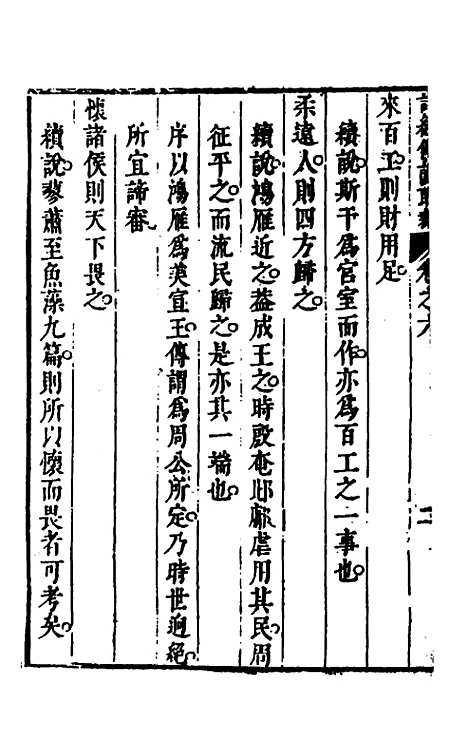 卷之六
來百工則財用足
續說斯干爲宮室而作亦爲百工之一事也
柔遠人則四方歸之
續說鴻雁近之蓋成王之時殷奄邶鄘虐用其民周
征平之而流民歸之是亦其一端也
序以鴻雁爲美宣王傳謂爲周公所定乃時世迥絕
所宜諦審
懷諸侯則天下畏之
續說蓼蕭至魚藻九篇則所以懷而畏者可考矣